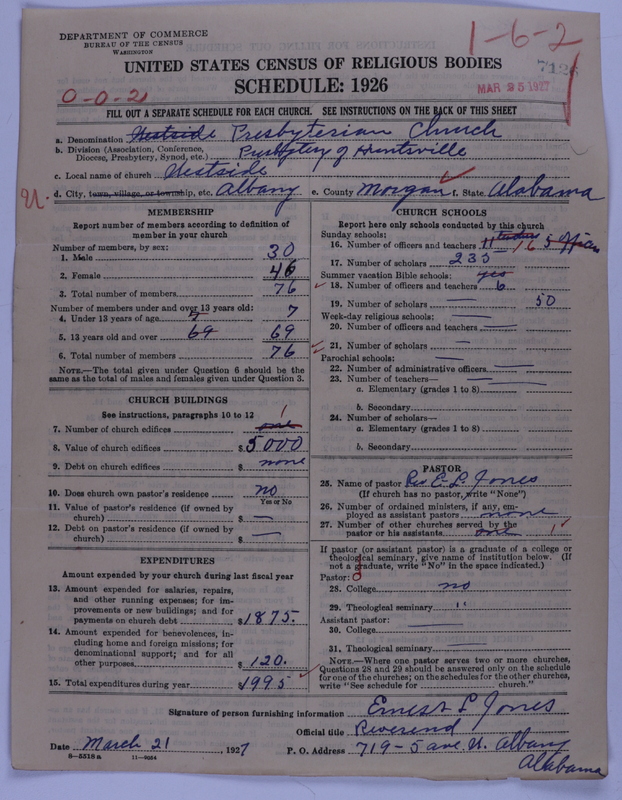 DEPARTMENT OF COMMERCE
BUREAU OF THE CENSUS
WASHINGTON
1-6-2
7126
UNITED STATES CENSUS OF RELIGIOUS BODIES
SCHEDULE: 1926
MAR 25 1927
0-0-2
FILL OUT A SEPARATE SCHEDULE FOR EACH CHURCH. SEE INSTRUCTIONS ON THE BACK OF THIS SHEET
a. Denomination Westside Presbyterian Church
b. Division (Association, Conference, Diocese, Presbytery, Synod, etc.) Presbytery of Huntsville
c. Local name of church Westside
U. d. City, town, village, or township, etc. Albany e. County Morgan f. State Alabama
MEMBERSHIP
Report number of members according to definition of
member in your church
Number of members, by sex:
1. Male 30
2. Female 46
3. Total number of members 76
Number of members under and over 13 years old:
4. Under 13 years of age 7 7
5. 13 years old and over 69 69
6. Total number of members 76
NOTE.—The total given under Question 6 should be
same as the total of males and females given under Question 3.
CHURCH BUILDINGS
See instructions, paragraphs 10 to 12
7. Number of church edifices one 1
8. Value of church edifices $5000
9. Debt on church edifices $ none
10. Does church own pastor's residence no
Yes or No
11. Value of pastor's residence (if owned by
church) $ —
12. Debt on pastor's residence (if owned by
church) $ —
EXPENDITURES
Amount expended by your church during last fiscal year
13. Amount expended for salaries, repairs,
and other running expenses; for im-
provements or new buildings; and for
payments on church debt $1875.
14. Amount expended for benevolences, in-
cluding home and foreign missions; for
denominational support; and for all
other purposes $120.
15. Total expenditures during year $1995
CHURCH SCHOOLS
Report here only schools conducted by this church
Sunday schools:
16. Number of officers and teachers 11 teachers 16 5 officers
17. Number of scholars 235
Summer vacation Bible schools: yes
18. Number of officers and teachers 6
19. Number of scholars — 50
Week-day religious schools: —
20. Number of officers and teachers —
21. Number of scholars —
Parochial schools: —
22. Number of administrative officers —
23. Number of teachers—
a. Elementary (grades 1 to 8)
b. Secondary
24. Number of scholars—
a. Elementary (grades 1 to 8)
b. Secondary
PASTOR
25. Name of pastor Rev E. L. Jones
(If church has no pastor, write "None")
26. Number of ordained ministers, if any, em-
ployed as assistant pastors none
27. Number of other churches served by the
pastor or his assistants one 1
If pastor (or assistant pastor) is a graduate of a college or
theological seminary, give name of institution below. (If
not a graduate, write "No" in the space indicated.)
Pastor:
28. College no
29. Theological seminary "
Assistant pastor:
30. College —
31. Theological seminary —
NOTE.—Where one pastor serves two or more churches,
Questions 28 and 29 should be answered only on the schedule
for one of the churches; on the schedules for the other churches,
write "See schedule for church."
Signature of person furnishing information Ernest L Jones
Official title Reverend
Date March 21 1927 P. O. Address 719-5 ave W. Albany
Alabama
8-5518a 11-9054